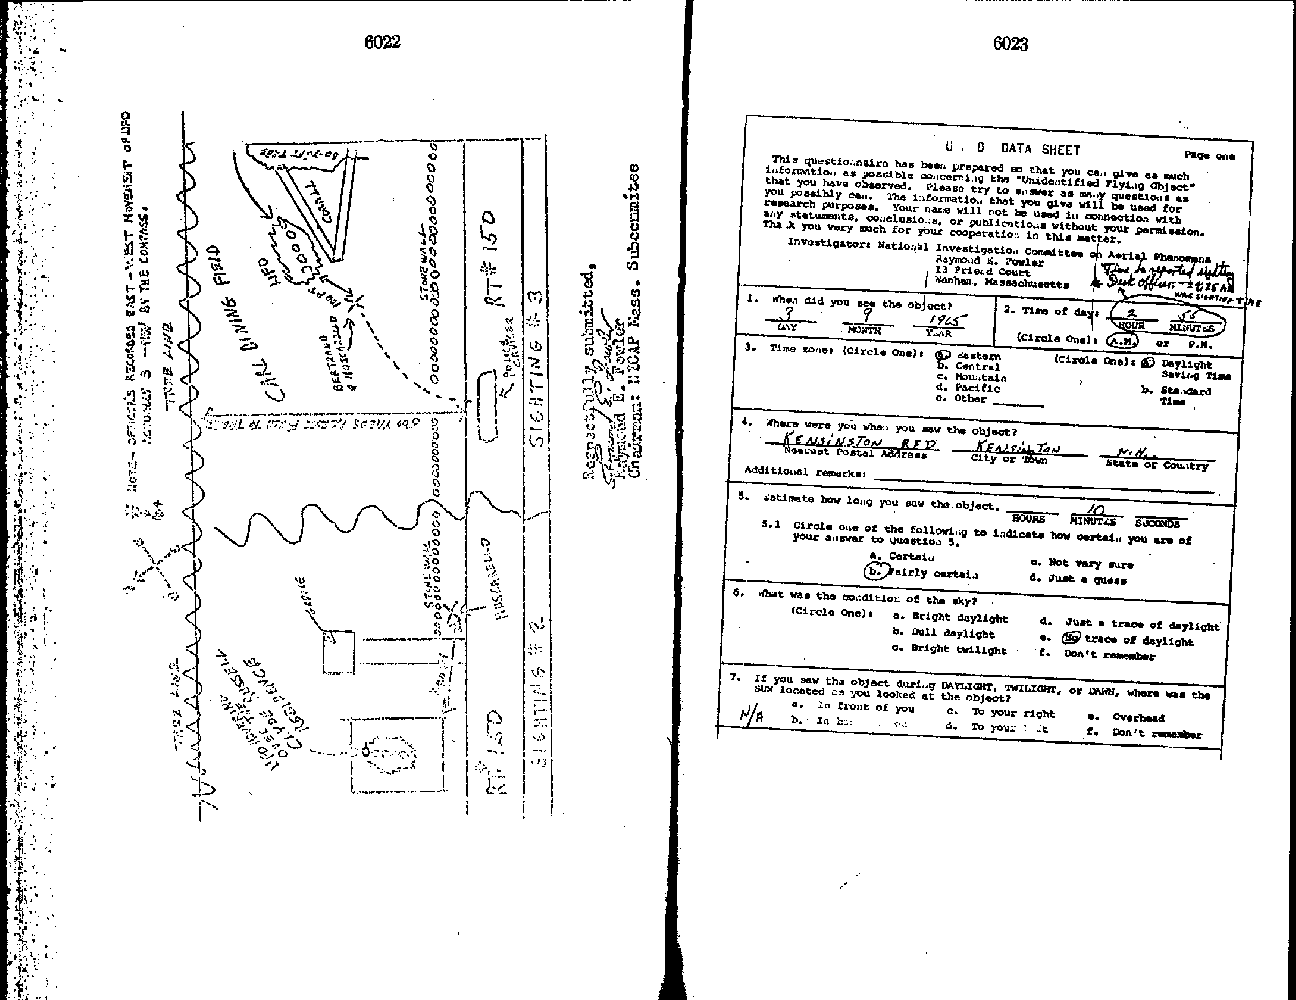 6022
* NOTE - OFFICERS RECORDED EAST-WEST MOVEMENT OF UFO
BY THE COMPASS.
TREE LINE
CARL DINING FIELD
UFO
100 FT
CORRAL
BERTRAND
& MUSCARELLO
STONE WALL
POLICE
CRUISER
RT# 150
SIGHTING # 3
TREE LINE
UFO HOVERING
OVER THE
CLYDE RUSSELL
RESIDENCE
STONE WALL
MUSCARELLO
RT# 150
SIGHTING # 2
Respectfully submitted,
Raymond E. Fowler
Chairman: NICAP Mass. Subcommittee
6023
DATA SHEET
Page one
This questionnaire has been prepared so that you can give as much
information as possible concerning the "Unidentified Flying Object"
that you have observed. Please try to answer as many questions as
you possibly can. The information that you give will be used for
research purposes. Your name will not be used in connection with
any statements, conclusions, or publications without your permission.
Thank you very much for your cooperation in this matter.
Investigator: National Investigation Committee on Aerial Phenomena
Raymond E. Fowler
13 Friend Court
Wenham, Massachusetts
1. When did you see the object?
3 9 1965
DAY MONTH YEAR
2. Time of day: 2 55
HOUR MINUTES
(Circle One): A.M. or P.M.
3. Time zone: (Circle One): a. Eastern
b. Central
c. Mountain
d. Pacific
e. Other
(Circle One): a. Daylight
Saving Time
b. Standard
Time
4. Where were you when you saw the object?
KENSINGTON RFD KENSINGTON N.H.
Nearest Postal Address City or Town State or Country
Additional remarks:
5. Estimate how long you saw the object. 10
HOURS MINUTES SECONDS
5.1 Circle one of the following to indicate how certain you are of
your answer to Question 5.
a. Certain c. Not very sure
b. Fairly certain d. Just a guess
6. What was the condition of the sky?
(Circle One): a. Bright daylight d. Just a trace of daylight
b. Dull daylight e. No trace of daylight
c. Bright twilight f. Don't remember
7. If you saw the object during DAYLIGHT, TWILIGHT, or DAWN, where was the
SUN located as you looked at the object?
N/A
a. In front of you c. To your right e. Overhead
b. In d. To your f. Don't remember